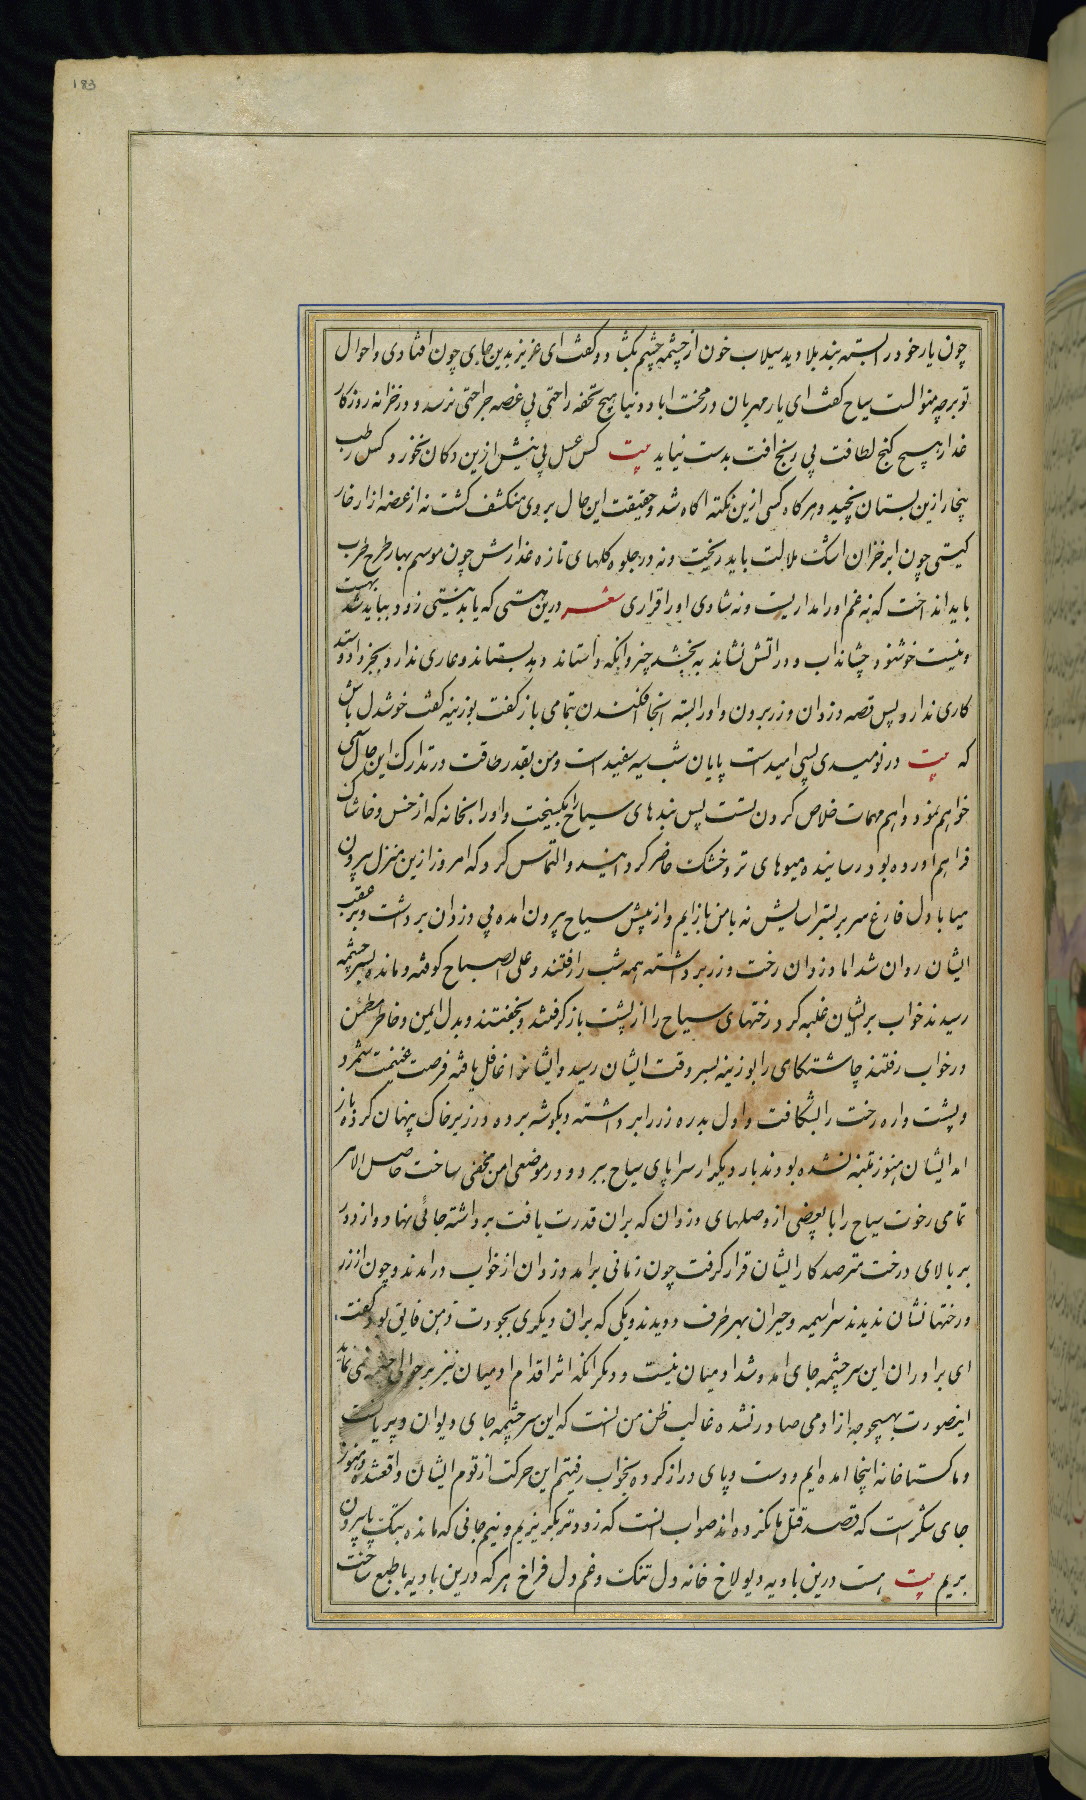 183
چون یار خود را بسته بند بلا دید سیلاب خون از چشمه چشم بگشاد و گفت ای عزیز بدین جای چون افتادی و احوال
تو بر چه منوالست سیاح گفت ای یار مهربان در محنت اباد دنیا هیچ تحفه راحتی بی غصه جراحتی نرسد و در خزانه روزگار
غدار هیچ گنج لطافت بی رنج افت بدست نیاید بیت کس عسل بی نیش ازین دکان نخورد کس رطب
بیخار ازین بستان نچید و هر کاه کسی ازین نکته اکاه شد و حقیقت این حال بر وی منکشف کشت نه از غصه ازار خار
کیتی چون ابر خزان اشک ملالت باید ریخت و نه در جلوه کلهای تازه عذارش چون موسم بهار طرح طرب
باید انداخت که نه غم اورا مداریست و نه شادی اورا قراری شعر درین هستی که یابد نیستی زود بباید شد بهست
و نیست خوشنود چشاند اب و در اتش نشاند به بخشد چیز وانکه واستاند دبد بستاند و عاری ندارد بجز داد و ستد
کاری ندارد پس قصه دزدان و زر بردن و اورا بسته انجا افکندن بتمامی باز کفت بوزینه کفت خوشدل باش
که بیت در نومیدی بسی امیدست پایان شب سیه سفیدست و من بقدر طاقت در تدارک این حال سعی
خواهم نمود و اهم مهمات خلاص کردن تست پس بندهای سیاح را بکسیخت و اورا بخانه که از خس و خاشاک
فراهم اورده بود رسانیده میوهای تر و خشک حاضر کردانید و التماس کرد که امروز ازین منزل بیرون
میا با دل فارغ سر بر بستر اسایش نه تا من باز ایم و از پیش سیاح بیرون امده پی دزدان برداشت و بر عقب
ایشان روان شد اما دزدان رخت و زر برداشته همه شب رافتند و علی الصباح کوفته و مانده بسر چشمه
رسیدند خواب بر ایشان غلبه کرد رختهای سیاح را از پشت باز کرفتند و بخفتند و بدل ایمن و خاطر مطمئن
در خواب رفتند چاشتکاهی را بوزینه بسر وقت ایشان رسید و ایشانرا غافل یافته فرصت غنیمت شمرد
و پشت واره رخت را بشکافت و اول بدره زر را برداشته و بکوشه برده در زیر خاک پنهان کرده باز
امد ایشان هنوز متنبه نشده بودند بار دیکر از سراپای سیاح ببرد و در موضعی امن مخفی ساخت حاصل الامر
تمامی رخوت سیاح را با بعضی از وصلهای دزدان که بران قدرت یافت برداشته جائی نهاد و از دور
بر بالای درخت مترصد کار ایشان قرار کرفت چون زمانی برامد دزدان از خواب درامدند و چون از زر
و رختها نشان ندیدند سراسیمه و حیران بهر طرف دویدند و یکی که بران دیکری بجودت ذهن فایق بود کفت
ای برادران این سر چشمه جای امد و شد ادمیان نیست و دیکر انکه اثر اقدام ادمیان نیز بر حوالی چشمه نمی نماید
اینصورت بهیچوجه از ادمی صادر نشده غالب ظن من انست که این سر چشمه جای دیوان و پریانست
و ما کستاخانه اینجا امده ایم و دست و پای دراز کرده بخواب رفتیم این حرکت از قوم ایشان واقعشده و هنوز
جای شکر است که قصد قتل ما نکرده اند صواب انست که زودتر بکریزیم و نیم جانی که مانده بتک پا بیرون
بریم بیت هست درین بادیه دیولاخ خانه دل تنک و غم دل فراخ هر که درین بادیه با طبع ساخت